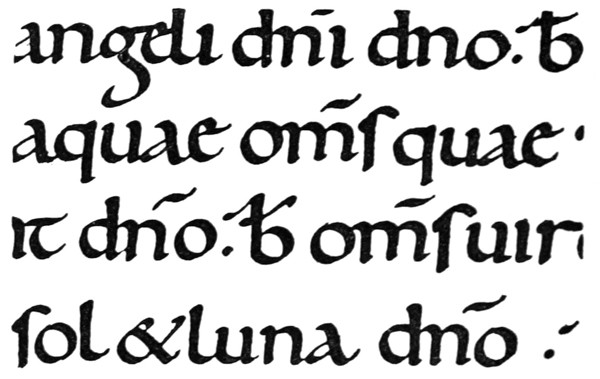 angeli dnī dno. ƀ
aquae om̄ſ quae ·
it dn̄o. ƀ om̄ſ uir
ſol & luna dn̄o .·